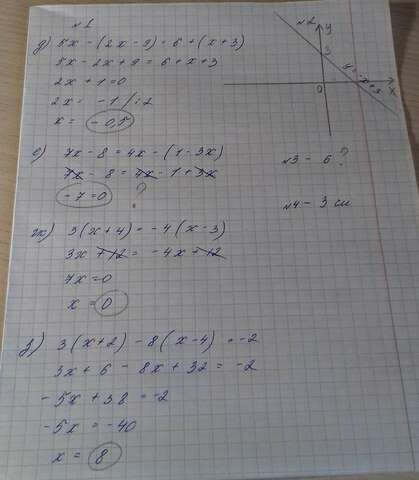 №1
д) 5x - (2x - 9) = 6 + (x + 3)
5x - 2x + 9 = 6 + x + 3
2x + 1 = 0
2x = -1 / :2
x = -0,5
е) 7x - 8 = 4x - (1 - 3x)
7x - 8 = 4x - 1 + 3x
-7 = 0 ?
ж) 3(x + 4) = -4(x - 3)
3x + 12 = -4x + 12
7x = 0
x = 0
з) 3(x + 2) - 8(x - 4) = -2
3x + 6 - 8x + 32 = -2
-5x + 38 = -2
-5x = -40
x = 8
№2
y
3
y = -x + 3
0
x
№3 - 6 ?
№4 - 3 см